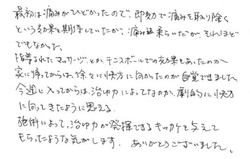 最初は痛みがひどかったので、即効で痛みを取り除く
という効果を期待していたが、痛み具合もいたいが、それほど
でもなかった。
指導されたマッサージとか、テニスボールでの効果もあったのか
家に帰ってからは、徐々に快方に向かったのが自覚できました。
今週に入ってからは、治ゆ力によってですのか、劇的に快方
に向ってきたように思える。
施術によって、治ゆ力が発揮できるキッカケを与えて
もらったような気がします。ありがとうございました。